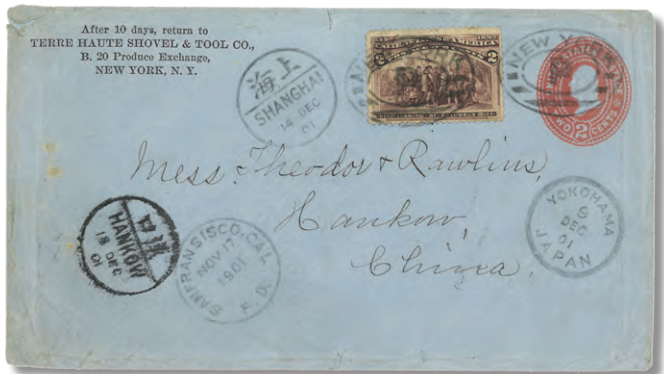 After 10 days, return to
TERRE HAUTE SHOVEL & TOOL CO.,
B. 20 Produce Exchange,
NEW YORK, N. Y.
上海
SHANGHAI
14 DEC
01
2
NEW YORK
TWO 2 CENTS
Mess. Theodor & Rawlins,
Hankow,
China.
HANKOW
18 DEC
01
SANFRANSISCO, CAL
NOV 17
1901
F. D.
YOKOHAMA
9
DEC
01
JAPAN